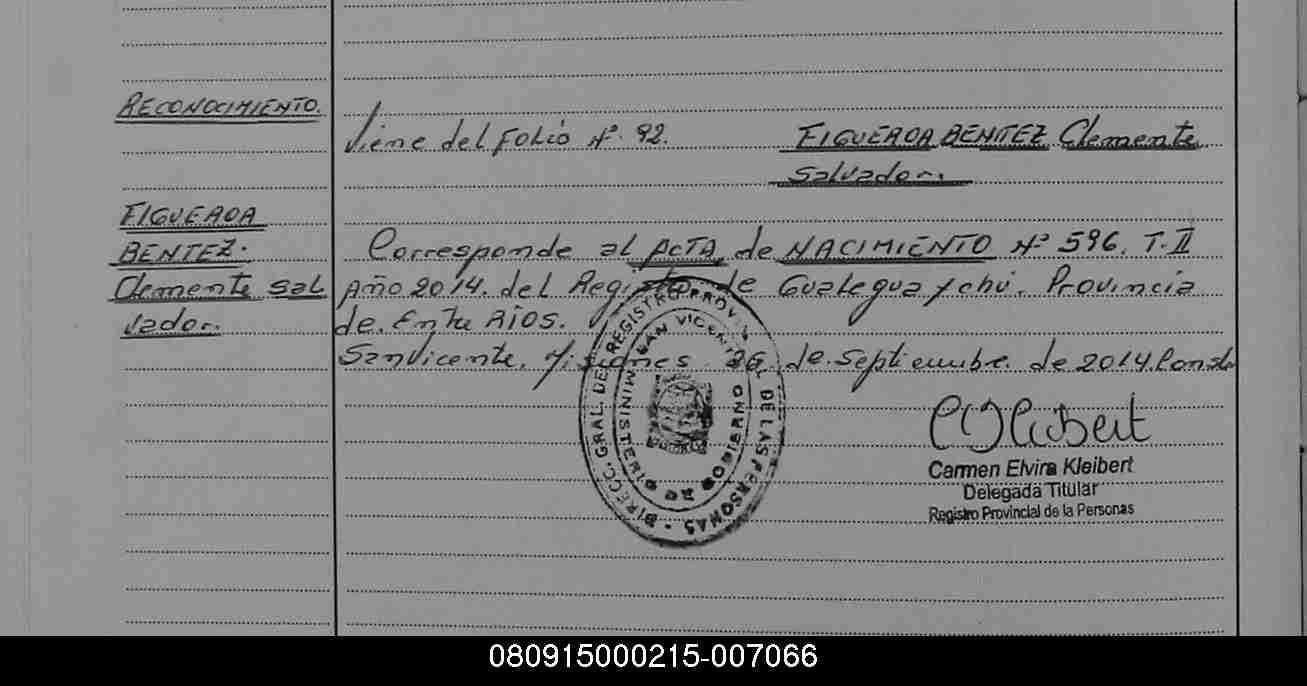 RECONOCIMIENTO.
Viene del FOLIO Nº. 92. FIGUEROA BENITEZ Clemente
Salvador.
FIGUEROA
BENTEZ.
Clemente Sal
vador.
Corresponde al ACTA de NACIMIENTO Nº 596. T. II
Año 2014. del Registro de Gualeguaychú. Provincia
de. Entre RÍOS.
San Vicente, Misiones 26 de. Septiembre. de 2014. Conste
DIRECC. GRAL. DEL REGISTRO PROVINCIAL DE LAS PERSONAS
MINISTERIO DE GOBIERNO
SAN VICENTE
Carmen Elvira Kleibert
Delegada Titular
Registro Provincial de la Personas
080915000215-007066